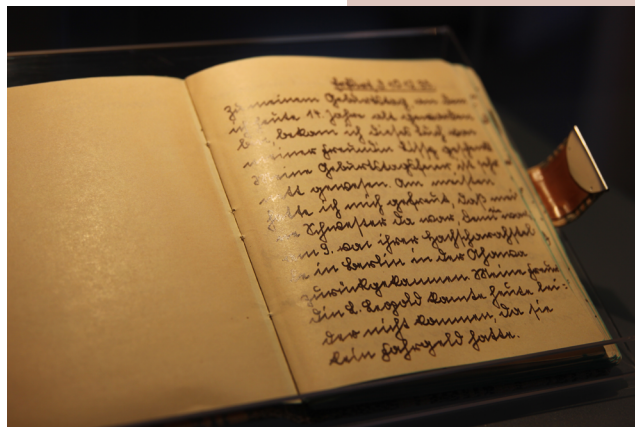 Zu meinem Geburtstag, an dem
ich heute 14 Jahre alt geworden
bin, bekam ich dieses Buch von
meiner Freundin
meine Geburtstagsfeier ist sehr
nett gewesen. Am meisten
hatte ich mich gefreut, daß mei-
ne Schwester da war,
9. von ihrer Hachscharahstel
in Berlin in der Ahawa
zurückgekommen. Meine Freun
din konnte heute lei-
der nicht kommen, da sie
kein Fahrgeld hatte.